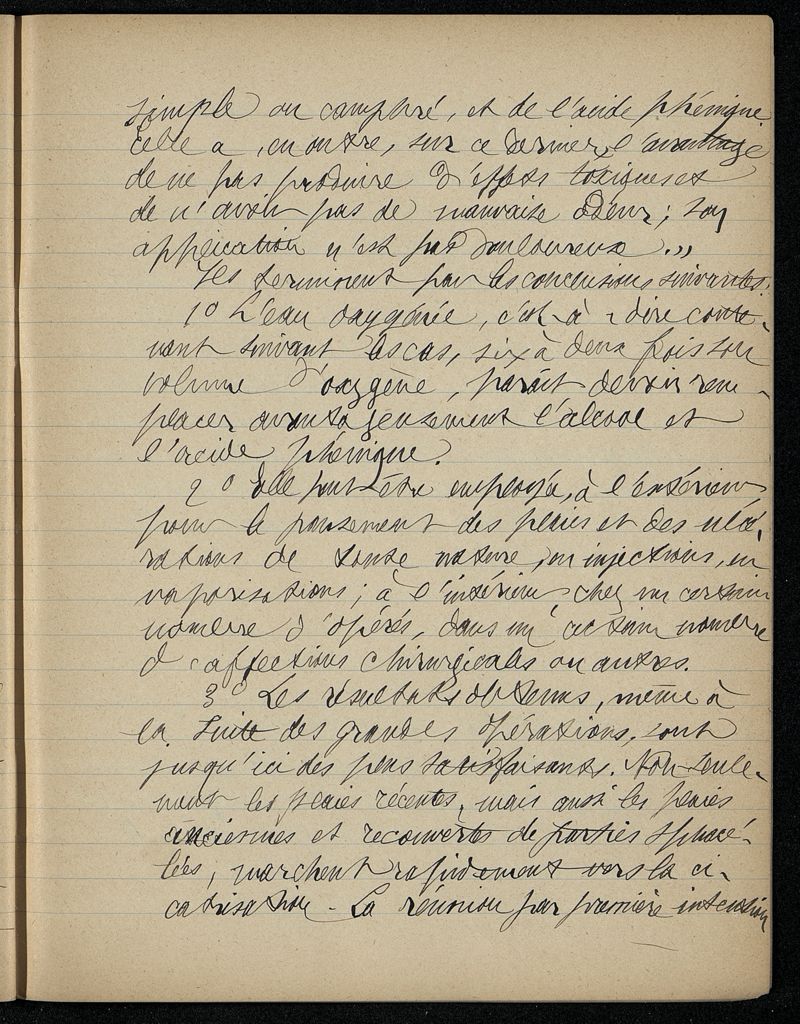 simple ou camphré, et de l'acide phénique.
Elle a, en outre, sur ce dernier l'avantage
de ne pas produire d'effets toxiques et
de n'avoir pas de mauvaise odeur; son
application n'est pas douloureuse...
Ils terminent par les conclusions suivantes:
1º L'eau oxygénée, c'est-à-dire conte-
nant suivant les cas, six à deux fois son
volume d'oxygène, paraît devoir rem-
placer avantageusement l'alcool et
l'acide phénique.
2º Elle peut être employée, à l'extérieur
pour le pansement des plaies et des ulcé-
rations de toute nature, en injections, en
vaporisations; à l'intérieur chez un certain
nombre d'opérés, dans un certain nombre
d'affections chirurgicales ou autres.
3º Les résultats obtenus, même à
la suite des grandes opérations, sont
jusqu'ici des plus satisfaisants. Non seule-
ment les plaies récentes, mais aussi les plaies
anciennes et recouvertes de parties sphacé-
lées, marchent rapidement vers la ci-
catrisation - La réunion par première intention